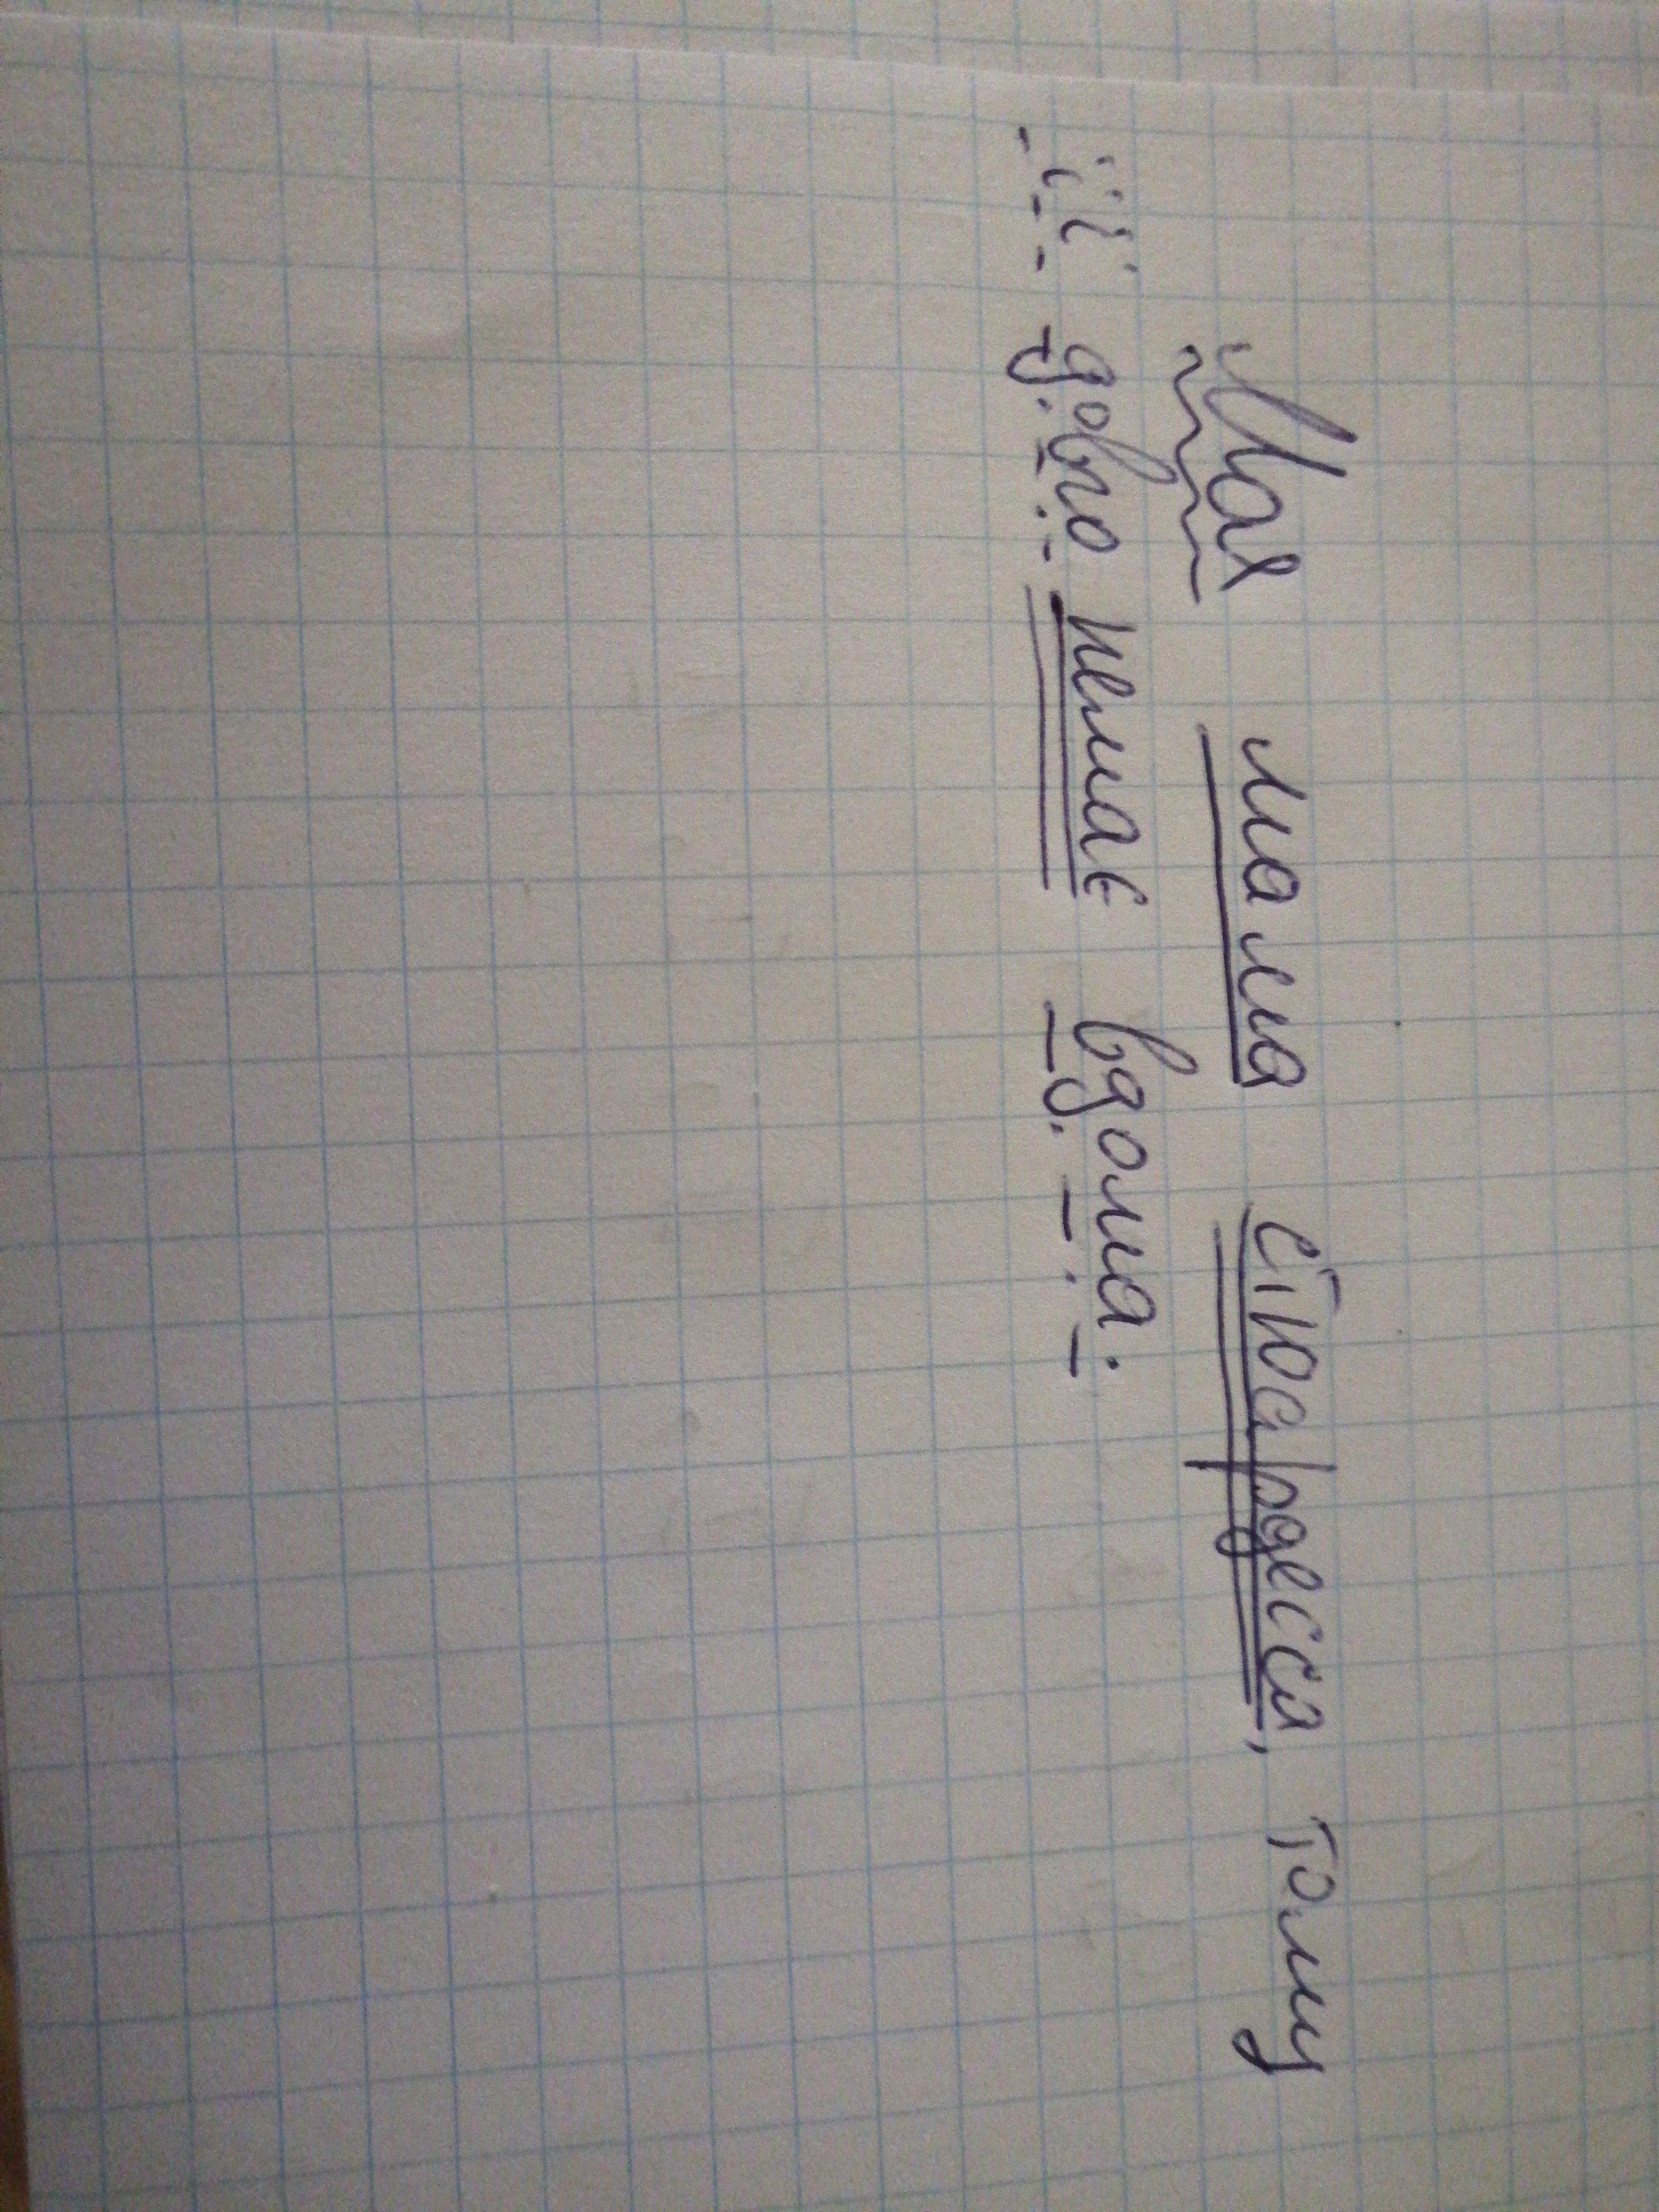 Моя мама стюардесса, тому
її довго немає вдома.